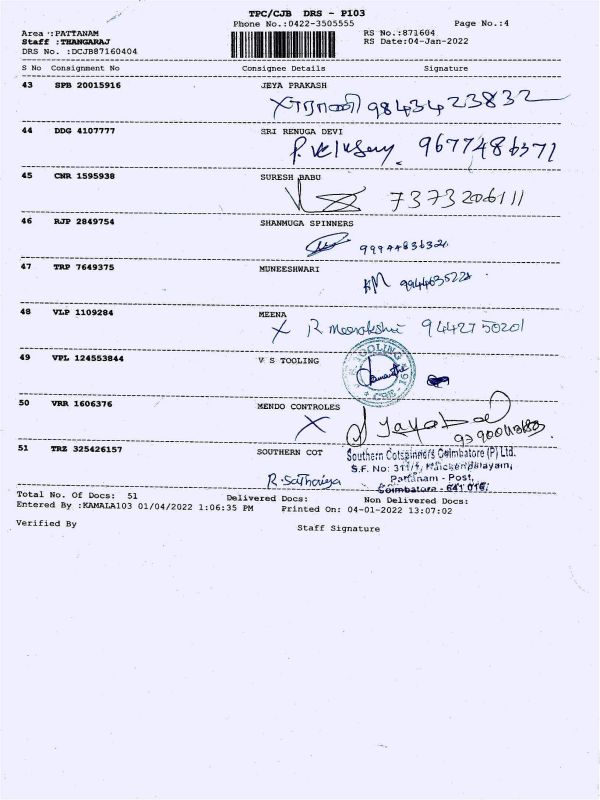 TPC/CJB DRS - P103
Phone No.:0422-3505555 Page No.:4
Area :PATTANAM RS No.:871604
Staff :THANGARAJ RS Date:04-Jan-2022
DRS No. :DCJB87160404
S No Consignment No Consignee Details Signature
43 SPB 20015916 JEYA PRAKASH
9843423832
44 DDG 4107777 SRI RENUGA DEVI
9677486371
45 CNR 1595938 SURESH BABU
7373206111
46 RJP 2849754 SHANMUGA SPINNERS
47 TRP 7649375 MUNEESHWARI
48 VLP 1109284 MEENA
X R Meenakshi 9442750201
49 VPL 124553844 V S TOOLING
50 VRR 1606376 MENDO CONTROLES
X
51 TRZ 325426157 SOUTHERN COT
Southern Cotspinners Coimbatore (P) Ltd.
S.F. No: Naickenpalayam,
R. Sathariya Pattanam - Post,
Coimbatore - 641 016.
Total No. Of Docs: 51 Delivered Docs: Non Delivered Docs:
Entered By :KAMALA103 01/04/2022 1:06:35 PM Printed On: 04-01-2022 13:07:02
Verified By Staff Signature